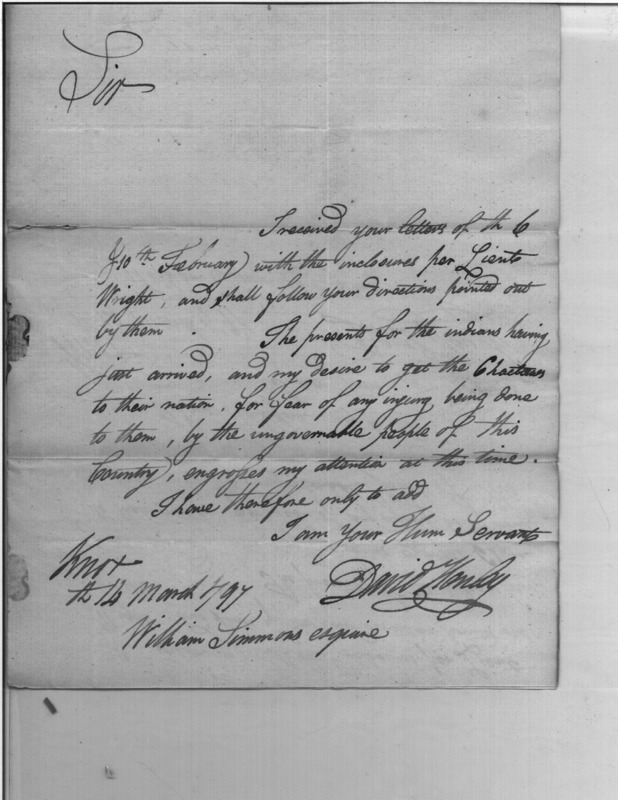 Sir
I received your letters of th 6
& 10th February with the inclosures per Lieut
Wright, and shall follow your directions pointed out
by them. The presents for the indians having
just arrived, and my desire to get the Chactaws
to their nation, for fear of any injury being done
to them, by the ungovernable people of this
Country, engrosses my attention at this time.
I have therefore only to add
I am Your Hum Servant
Knox
th 14 March 1797
David Henley
William Simmons esquire